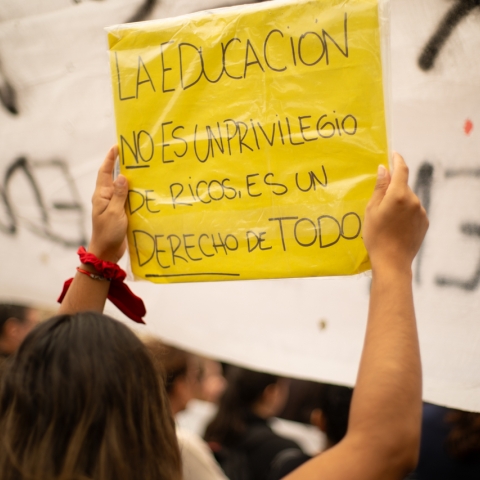 LA EDUCACIÓN
NO ES UN PRIVILEGIO
DE RICOS, ES UN
DERECHO DE TODO